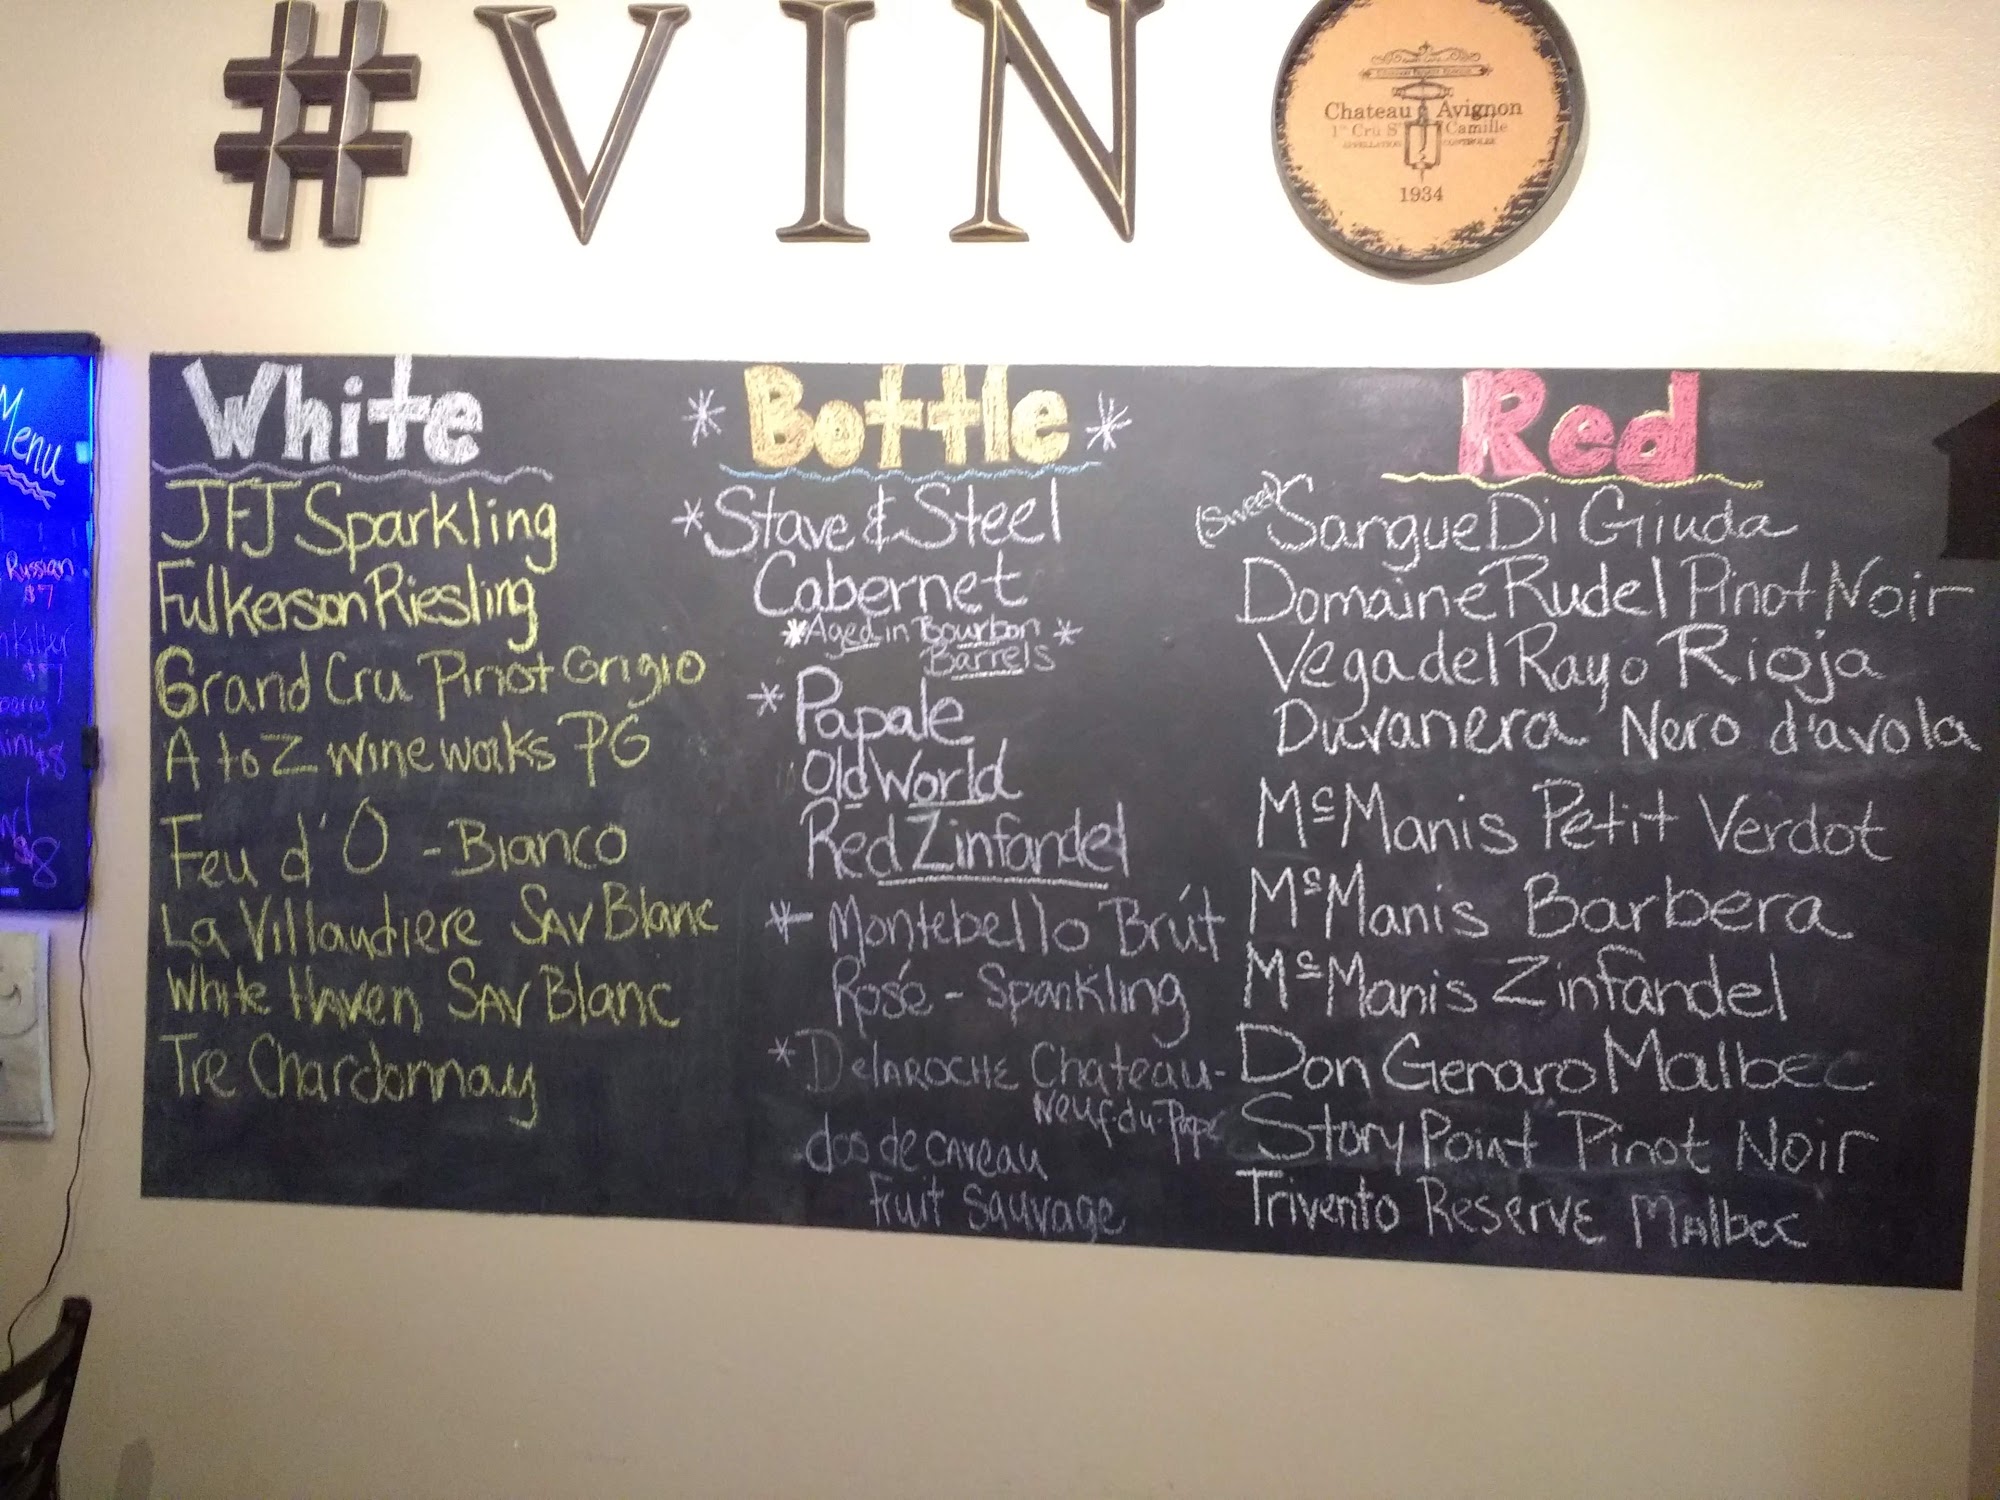 #VIN
Chateau Avignon
1er Cru St Camille
APPELLATION CONTROLEE
1934
Menu
Russian
$7
Killer
$7
$8
$8
White
JFJ Sparkling
Fulkerson Riesling
Grand Cru Pinot Grigio
A to Z Wineworks PG
Feu d'O - Bianco
La Villaudiere SAV Blanc
White Haven SAV Blanc
Tre Chardonnay
* Bottle *
* Stave & Steel
Cabernet
* Aged in Bourbon *
Barrels
* Papale
Old World
Red Zinfandel
* Montebello Brút
Rosé - Sparkling
* Delaroche Chateau-
Neuf-du-Pape
dos de caveau
Fruit Sauvage
Red
(Sweet) Sangue Di Giuda
Domaine Rudel Pinot Noir
Vega del Rayo Rioja
Duvanera Nero d'avola
McManis Petit Verdot
McManis Barbera
McManis Zinfandel
Don Genaro Malbec
Story Point Pinot Noir
Trivento Reserve Malbec